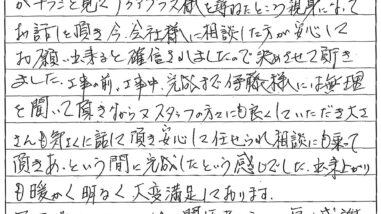 がチラシを見てライフプラス様を尋ねたという親身になって
お話しを頂き今、会社様に相談した方が安心して
お願い出来ると確信をしましたので決めさせて頂き
ました。工事の前、工事中、完成まで伊藤様には無理
を聞いて頂きながら又スタッフの方々にも良くしていただき大工
さんも気さくに話して頂き安心して任せられ相談にも乗って
頂きあっという間に完成したという感じでした。出来上がり
も暖かく明るく大変満足しております。